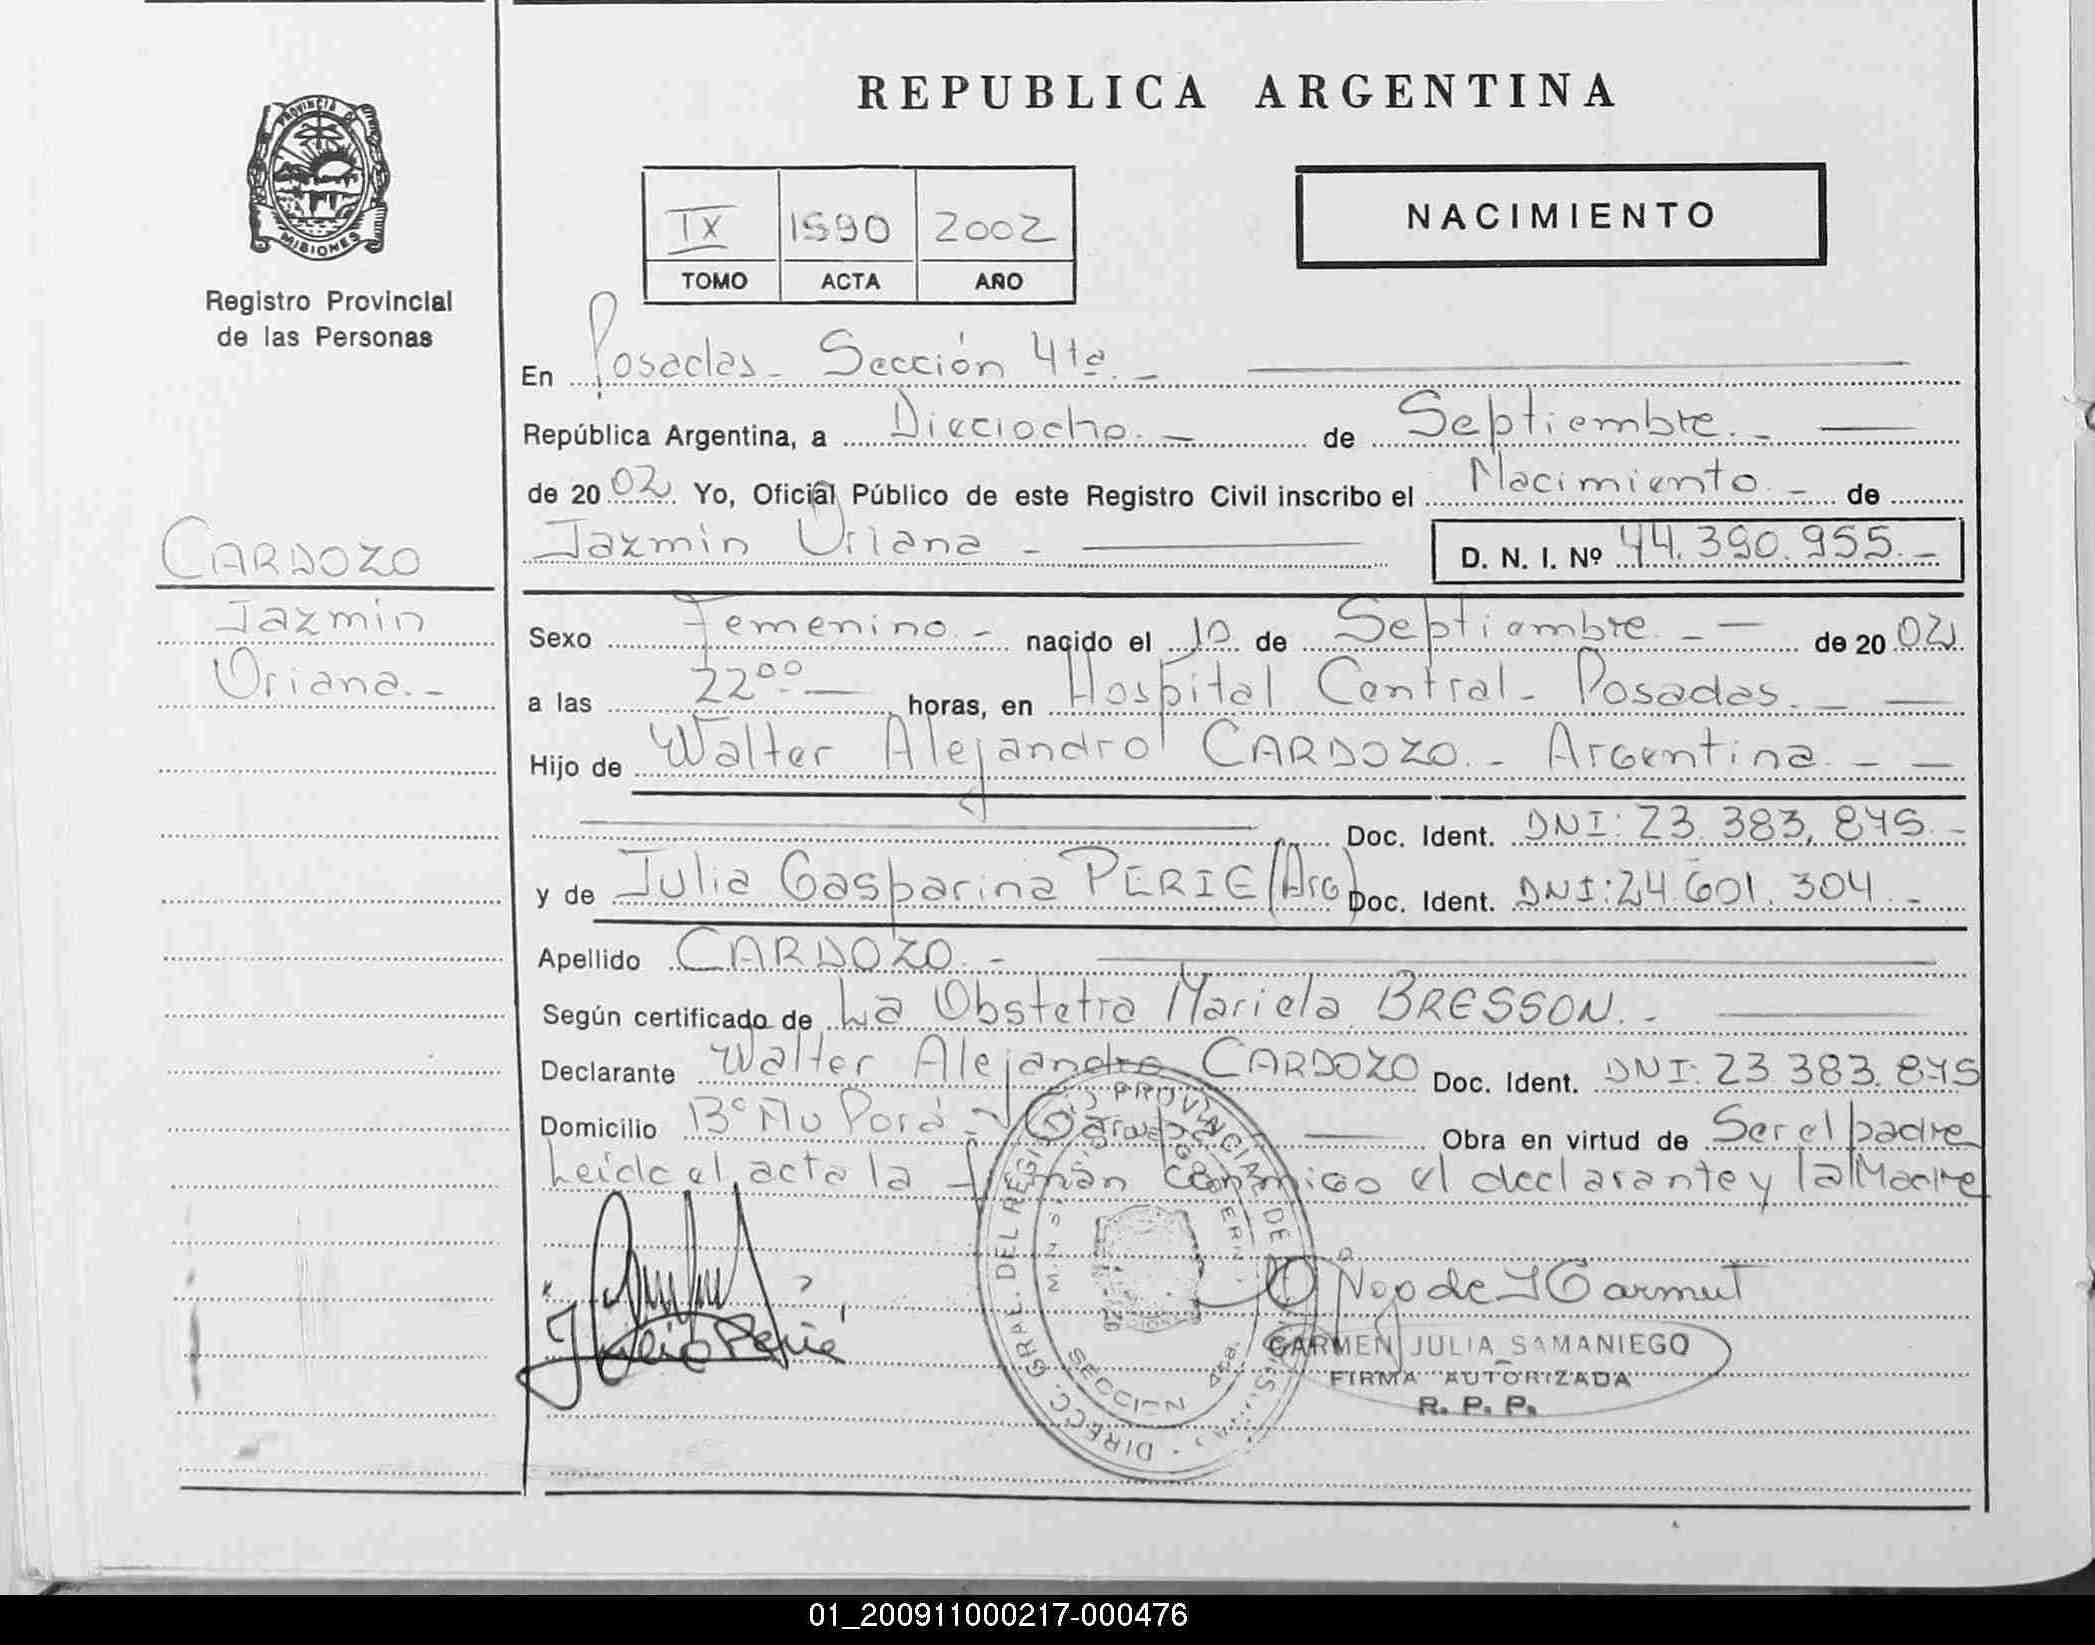 REPUBLICA ARGENTINA
PROVINCIA DE MISIONES
Registro Provincial
de las Personas
IX 1590 2002
TOMO ACTA AÑO
NACIMIENTO
CARDOZO
Jazmin
Oriana.-
En Posadas - Sección 4ta. -
República Argentina, a Dieciocho. - de Septiembre. -
de 2002. Yo, Oficial Público de este Registro Civil inscribo el Nacimiento - de
Jazmin Oriana - D. N. I. Nº 44.390.955.-
Sexo Femenino. - nacido el 10 de Septiembre. - - de 2002.
a las 22⁰⁰ - horas, en Hospital Central - Posadas. - -
Hijo de Walter Alejandro CARDOZO. - Argentina. - -
Doc. Ident. DNI: 23.383.845.-
y de Julia Gasparina PERIE (Arg) Doc. Ident. DNI: 24.601.304.-
Apellido CARDOZO. -
Según certificado de La Obstetra Mariela BRESSON. -
Declarante Walter Alejandro CARDOZO Doc. Ident. DNI: 23.383.845
Domicilio B° Ñu Porá - Garupá Obra en virtud de Ser el padre
Leída el acta la firman conmigo el declarante y la Madre
Julia Perié
DIRECC. GRAL. DEL REGI PROVINCIA DE
SECCION 4ta.
CARMEN JULIA SAMANIEGO
FIRMA AUTORIZADA
R. P. P.
01_200911000217-000476